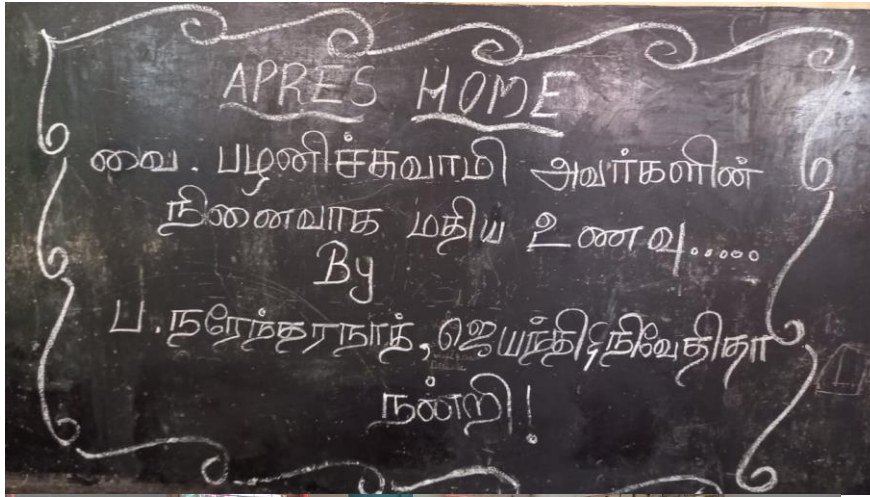 APRES HOME
வை. பழனிச்சுவாமி அவர்களின்
நினைவாக மதிய உணவு.....
By
ப. நரேந்தரநாத், ஜெயந்தி, நிவேதிதா
நன்றி!